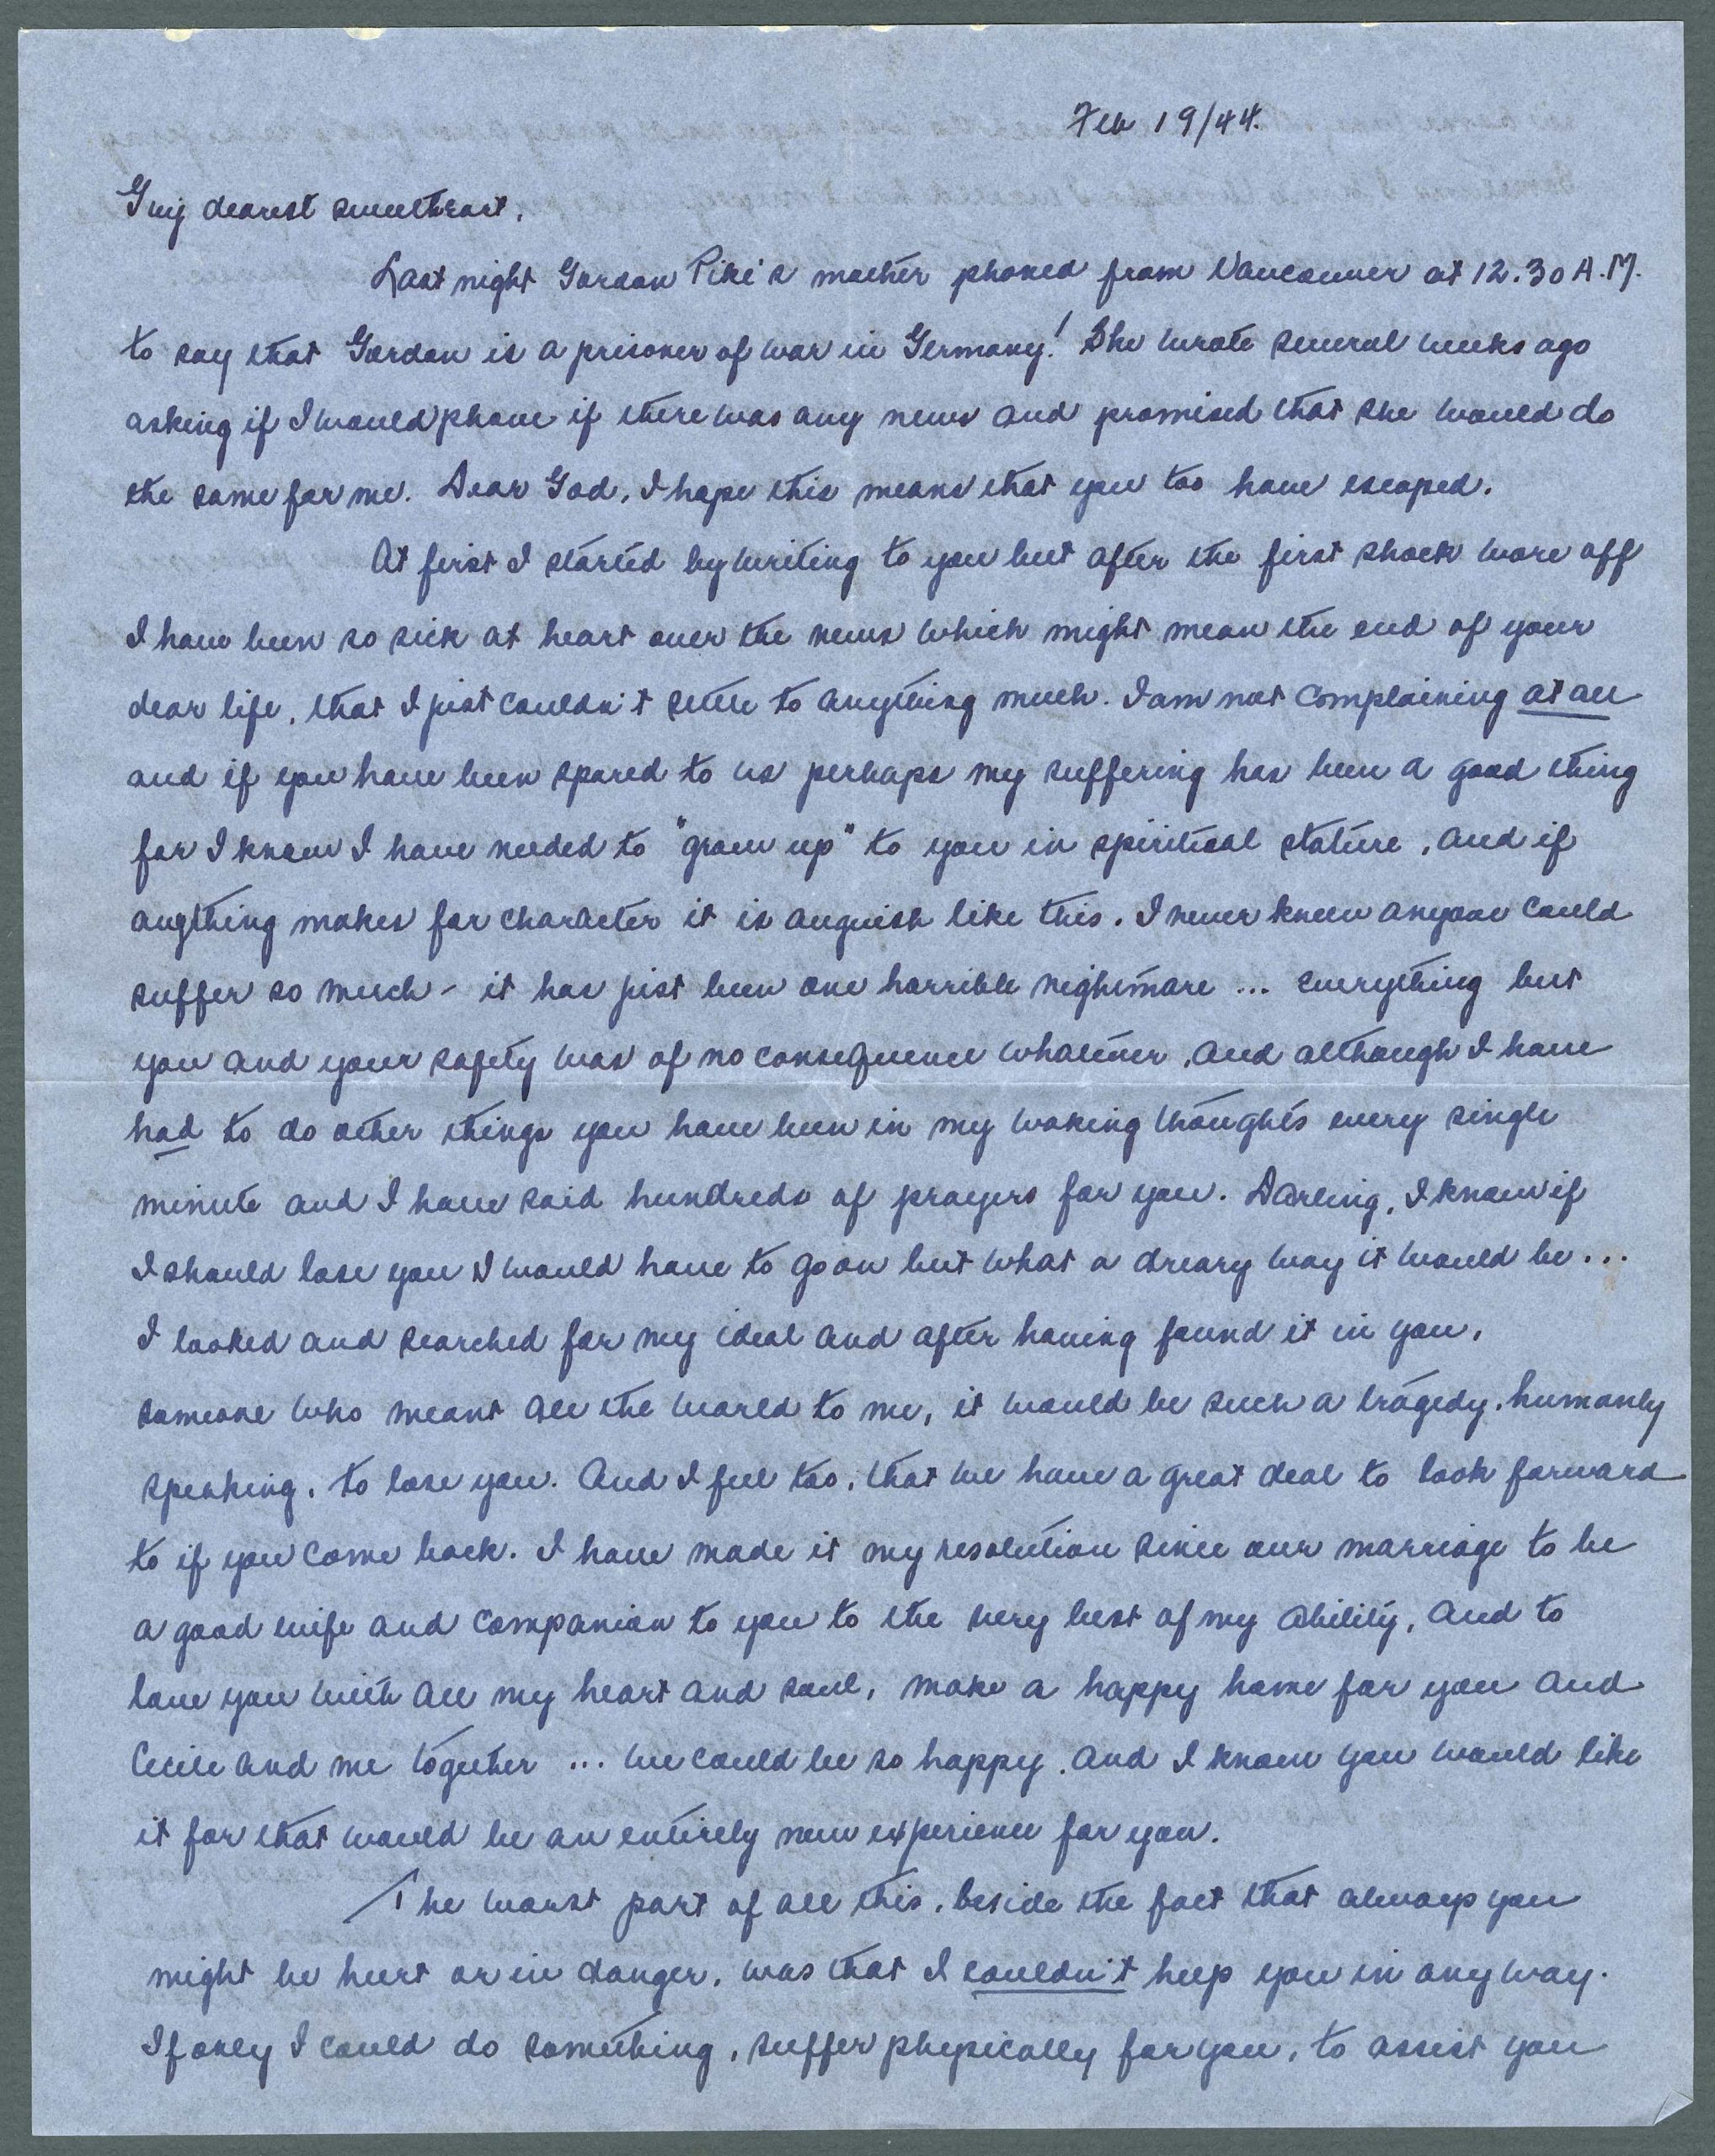 Feb 19/44.
Guy dearest sweetheart,
Last night Gordon Pike's mother phoned from Vancouver at 12.30 A.M.
to say that Gordon is a prisoner of war in Germany! She wrote several weeks ago
asking if I would phone if there was any news and promised that she would do
the same for me. Dear God, I hope this means that you too have escaped.
At first I started by writing to you but after the first shock wore off
I have been so sick at heart over the news which might mean the end of your
dear life, that I just couldn't settle to anything much. I am not complaining at all
and if you have been spared to us perhaps my suffering has been a good thing
for I know I have needed to "grow up" to you in spiritual stature, and if
anything makes for character it is anguish like this. I never knew anyone could
suffer so much - it has just been one horrible nightmare ... everything but
you and your safety was of no consequence whatever, and although I have
had to do other things you have been in my waking thoughts every single
minute and I have said hundreds of prayers for you. Darling, I know if
I should lose you I would have to go on but what a dreary way it would be...
I looked and searched for my ideal and after having found it in you,
someone who meant all the world to me, it would be such a tragedy, humanly
speaking, to lose you. And I feel too, that we have a great deal to look forward
to if you come back. I have made it my resolution since our marriage to be
a good wife and companion to you to the very best of my ability, and to
love you with all my heart and soul, make a happy home for you and
Cecile and me together ... we could be so happy. And I know you would like
it for that would be an entirely new experience for you.
The worst part of all this, beside the fact that always you
might be hurt or in danger, was that I couldn't help you in any way.
If only I could do something, suffer physically for you, to assist you